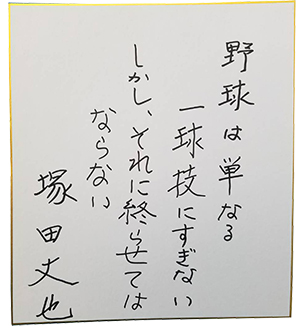 野球は単なる
一球技にすぎない
しかし、それに終らせては
ならない
塚田丈也